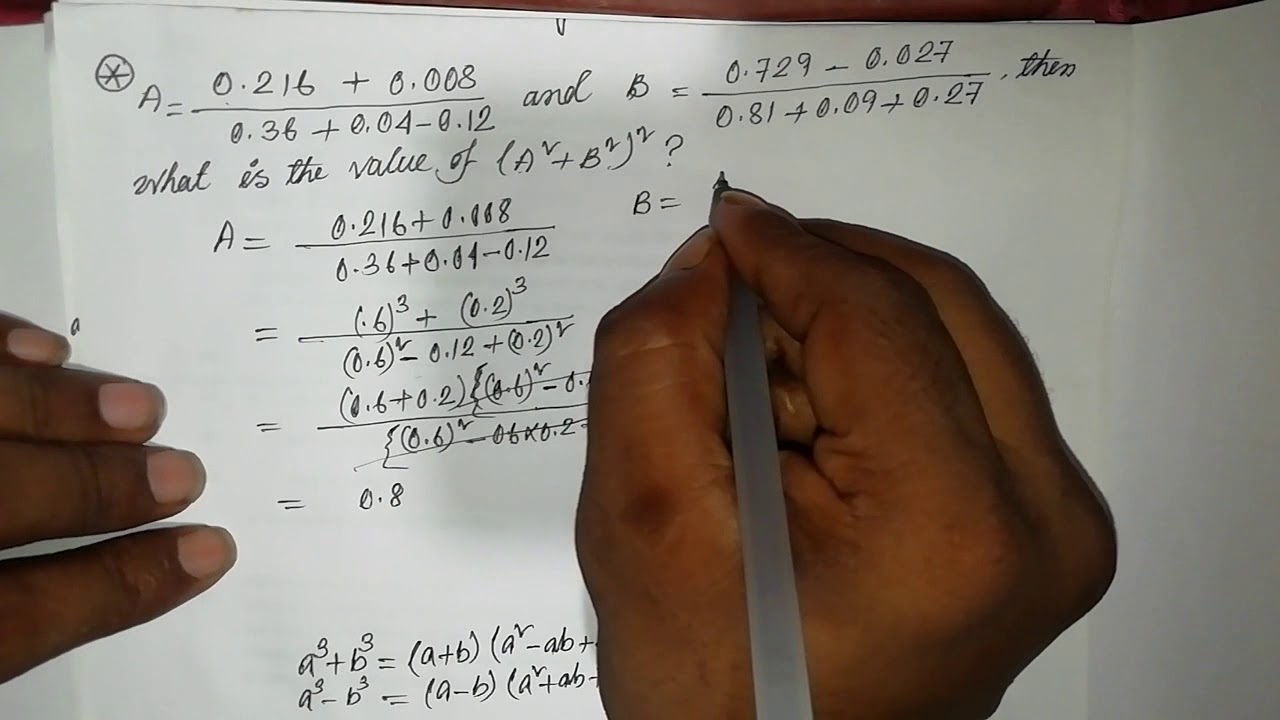 ⊛ A = (0.216 + 0.008)/(0.36 + 0.04 - 0.12) and B = (0.729 - 0.027)/(0.81 + 0.09 + 0.27), then
what is the value of (A² + B²)² ?
A = (0.216 + 0.008)/(0.36 + 0.04 - 0.12)
B =
= ((.6)³ + (0.2)³)/((0.6)² - 0.12 + (0.2)²)
= (0.6 + 0.2){(0.6)² - 0./{(0.6)² - 06×0.2
= 0.8
a
a³ + b³ = (a+b) (a² - ab +
a³ - b³ = (a-b) (a² + ab -